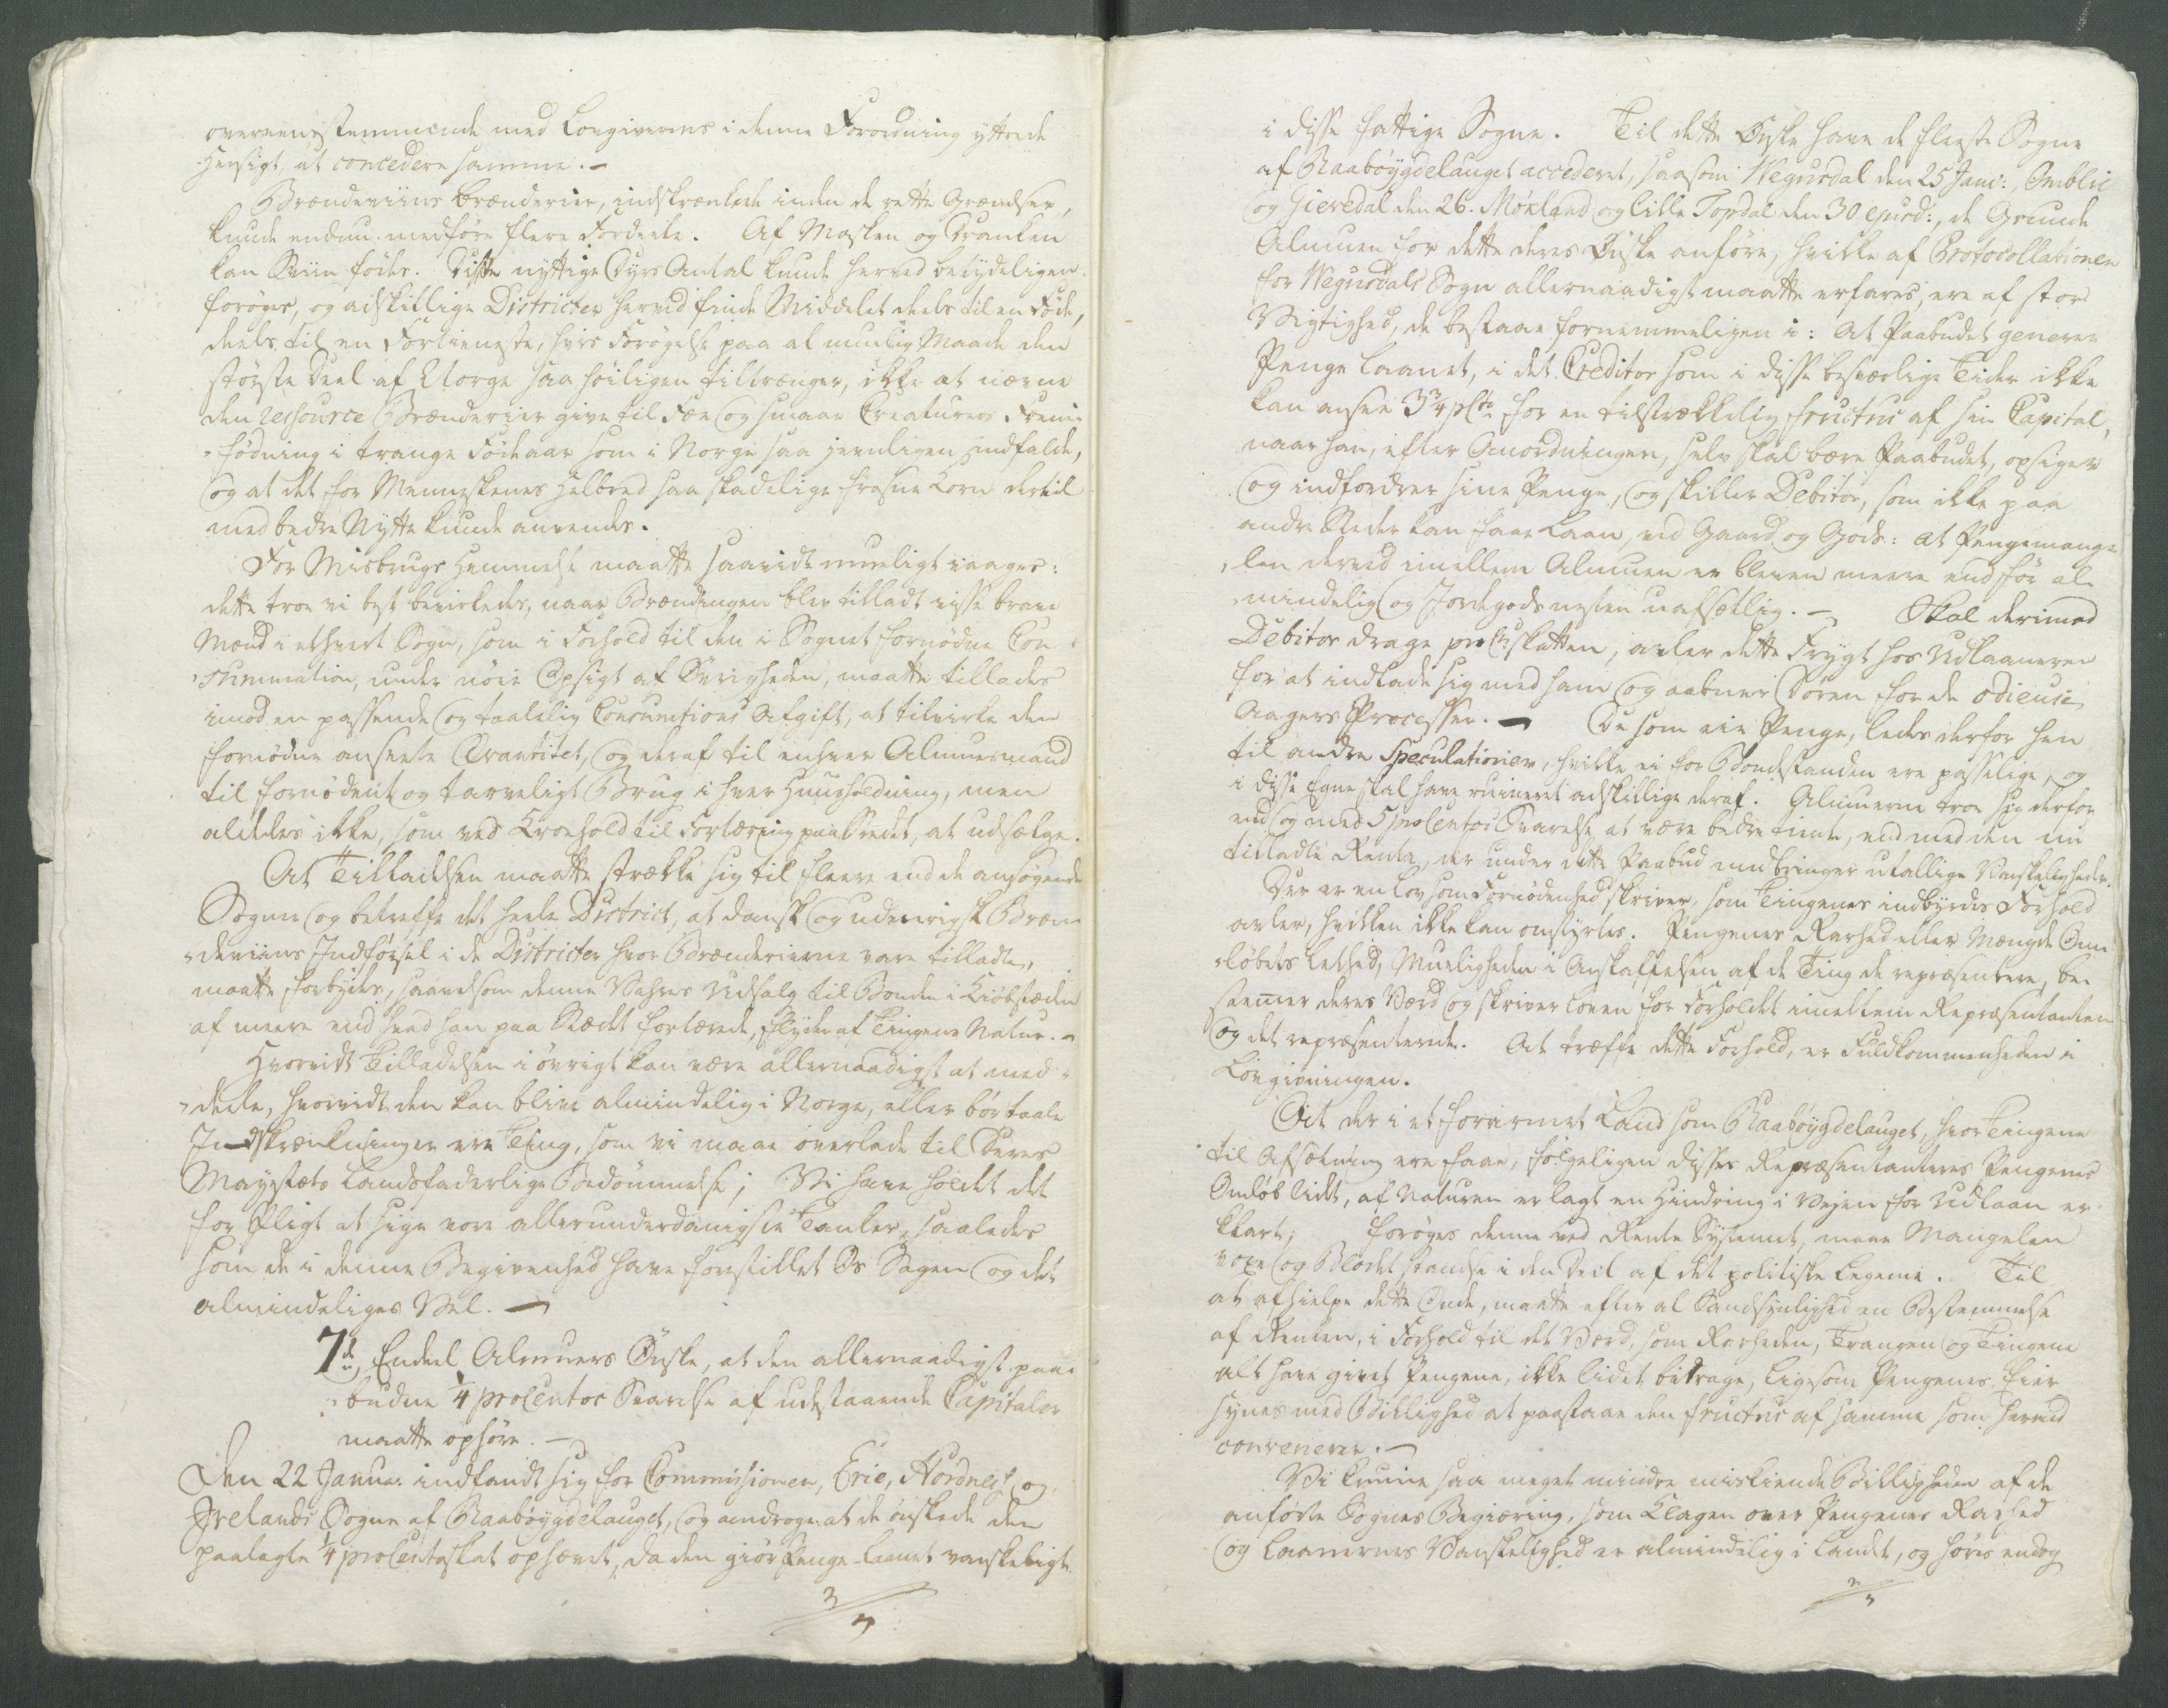 overeensstemmende med Lovgiverens i denne Forordning yttrede
Hensigt, at concedere samme. -
Brændeviins Brænderier, indskrænkede inden de rette Grændser,
kunde endnu medføre flere Fordeele. Af Masken og Dranken
kan Sviin fødes. Disse nyttige Dyrs Antal kunde herved betydeligen
forøges, og adskillige Districter herved finde Middelet deels til en Føde,
deels til en Fortieneste, hvis Forøgelse paa al muelig Maade den
største Deel af Norge saa høiligen tiltrænger, ikke at nævne
den ressource Brænderier give til Fæe og smaae Creaturers Frem-
fødning i trange Fødeaar som i Norge saa jevnligen indfalde,
og at det for Menneskenes Helbred saa skadelige frosne Korn dertil
med bedre Nytte kunde anvendes.
For Misbrugs Hemmelse maatte saavidt mueligt vaages:
dette troe vi best bevirkedes, naar Brændingen blev tilladt visse brave
Mænd i ethvert Sogn, som i Forhold til den i Sognet fornødne Con-
sumation, under nøie Opsigt af Øvrigheden, maatte tillades
imod en passende og taalelig Consumtions Afgift, at tilvirke den
fornødne ansatte Qvantitet, og deraf til enhver Almuesmand
til fornødent og tarveligt Brug i hver Huusholdning, men
aldeles ikke, som ved Kroehold til Fortæring paa Stedet, at udsælge.
At Tilladelsen maatte strække sig til fleere end de ansøgende
Sogne og betreffe det heele District, at dansk og udenrigsk Bræn-
deviins Indførsel i de Districter hvor Brænderierne vare tilladte,
maatte forbydes, saavelsom denne Vahres Udsalg til Bonden i Kiøbstæden
af meere end hvad han paa Stedet fortærede, flyder af Tingenes Natur. -
Hvorvidt Tilladelsen i øvrigt kan være allernaadigst at med-
deele, hvorvidt den kan blive almindelig i Norge, eller bør taale
Indskrænkninger ere Ting, som vi maae overlade til Deres
Mayestæts Landsfaderlige Bedømmelse; Vi have holdt det
for Pligt at sige vore allerunderdanigste Tanker, saaledes
som de i denne Begivenhed have forestillet Os Sagen og det
almindeliges Vel. -
7de, Endeel Almuers Ønske, at den allernaadigst paa-
budne 1/4 proCentos Svarelse af udestaaende Capitaler
maatte ophøre. -
Den 22 Janua. indfandt sig for Commissionen, Evie, Hordnes og
Irelands Sogne af Raabøygdelauget, og androge at de ønskede den
paalagte 1/4 proCentoskat ophævet, da den giør Penge-Laanet vanskeligt
i disse fattige Sogne. Til dette Ønske have de fleeste Sogne
af Raabøygdelauget accederet, saasom Wegusdal den 25 Janv:, Omblie
og Gieredal den 26. Mókland og lille Topdal den 30 ejusd:, de Grunde
Almuen for dette deres Ønske anføre, hvilke af Protocollationen
for Wegusdals Sogn allernaadigst maatte erfares, ere af stor
Vigtighed, de bestaae fornemmeligen i: At Paabudet generer
Penge Laanet, i det Creditor som i disse besværlige Tider ikke
kan ansee 3 3/4 pCto for en tilstrækkelig fructus af sin Capital,
naar han, efter Anordningen, selv skal bære Paabudet, opsiger
og indfordrer sine Penge, og skiller Debitor, som ikke paa
andre Steder kan faae Laan, ved Gaard og Gods: at Pengemange-
len derved imellem Almuen er bleven meere end før al-
mindelig og Jordegods nesten uafsættelig. - Skal derimod
Debitor drage proCto skatten, avler dette Frygt hos Udlaaneren
for at indlade sig med ham og aabner Døren for de odieuse
Aagers Processer. - De som eie Penge, ledes derfor hen
til andre Speculationer, hvilke ei for Bondestanden ere passelige, og
i disse Egne skal have ruineret adskillige deraf. Almuerne troe sig derfor
endog med 5 proCentos Svarelse at være bedre tiente, end med den nu
tilladte Rente, der under dette Paabud medbringer utallige Vanskeligheder.
Der er en Lov som Fornødenhed skriver, som Tingenes indbyrdes Forhold
avler, hvilken ikke kan omstyrtes. Pengenes Rarhed eller Mængde Om-
løbets Lethed, Mueligheden i Anskaffelsen af de Ting de repræsentere, be-
stemmer deres Værd og skriver Loven for Forholdet imellem Repræsentanten
og det repræsenterede. At træffe dette Forhold, er Fuldkommenheden i
Lovgivningen.
At der i et forarmet Land som Raabøygdelauget, hvor Tingene
til Afsætning ere faae, følgeligen disses Repræsentanteres Pengenes
Omløb lidet, af Naturen er lagt en Hindring i Vejen for Udlaan er
klart; forøges denne ved Rente Systemet, maae Mangelen
voxe og Blodet standse i den Deel af det politiske Legeme. Til
at afhielpe dette Onde, maatte efter al Sandsynlighed en Bestemmelse
af Renten, i Forhold til det Værd, som Rarheden, Trangen og Tingene
alt have givet Pengene, ikke lidet bidrage, ligesom Pengenes Eier
synes med Billighed at paastaae den fructus af samme som herved
convenerer. -
Vi kunne saa meget mindre miskiende Billigheden af de
anførte Sognes Begiæring, som Klagen over Pengenes Rarhed
og Laanernes Vanskelighed er almindelig i Landet, og høres endog